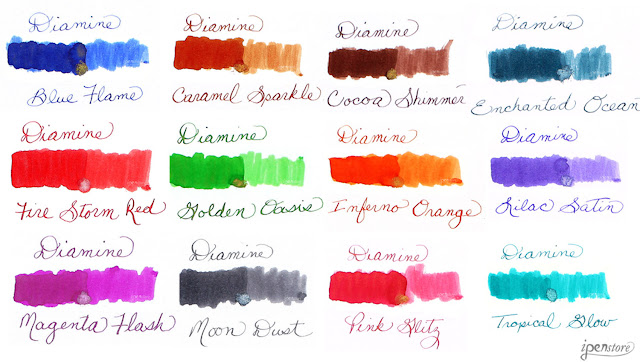 Diamine
Blue Flame
Diamine
Caramel Sparkle
Diamine
Cocoa Shimmer
Diamine
Enchanted Ocean
Diamine
Fire Storm Red
Diamine
Golden Oasis
Diamine
Inferno Orange
Diamine
Lilac Satin
Diamine
Magenta Flash
Diamine
Moon Dust
Diamine
Pink Glitz
Diamine
Tropical Glow
ipenstore